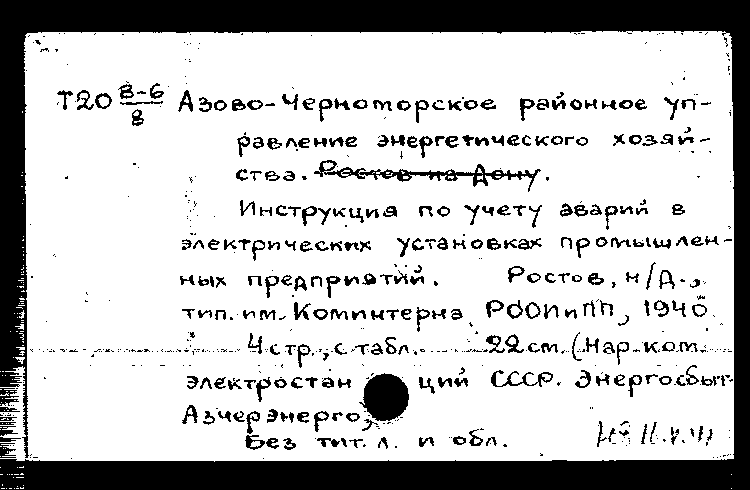 Т20 В-6/8 Азово-Черноморское районное уп-
равление энергетического хозяй-
ства. Ростов на Дону.
Инструкция по учету аварий в
электрических установках промышлен-
ных предприятий. Ростов, н/Д.,
тип. им. Коминтерна РООИиПП, 1940
4 стр., с табл. 22 см. (Нар. ком.
электростанций СССР. Энергосбыт
Азчерэнерго)
Без тит. л. и обл.